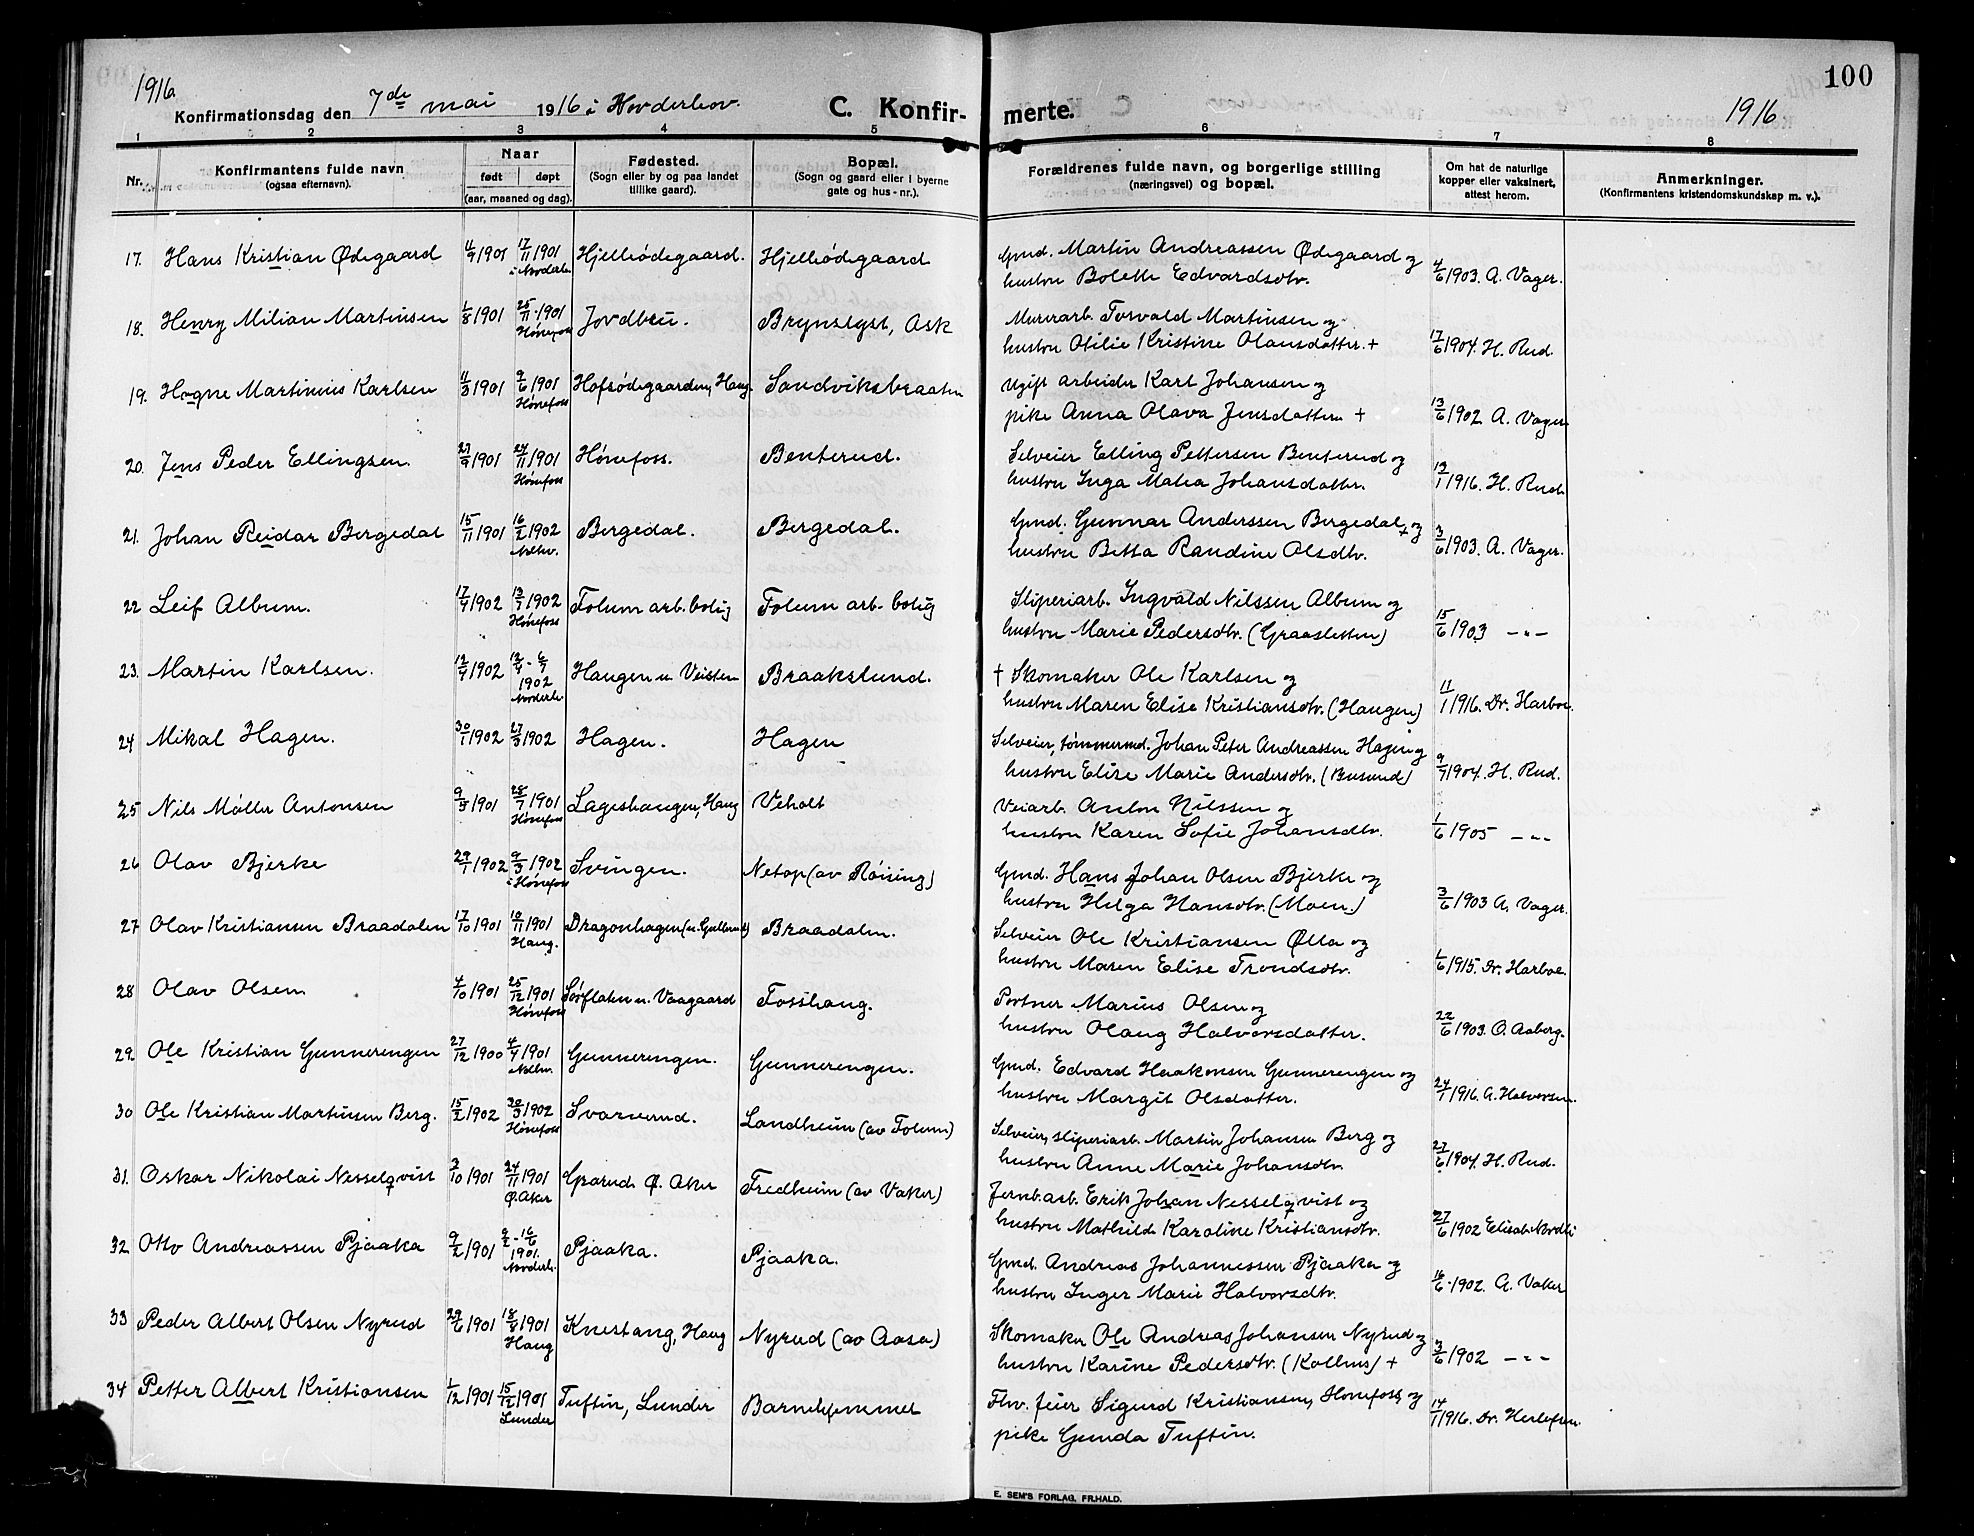 1916
100
Konfirmationsdag den 7de mai 1916 i Norderhov.
C. Konfir-
merte.
1916
1 2 3 4 5 6 7 8
Nr.
Konfirmantens fulde navn
(ogsaa efternavn).
Naar
født døpt
(aar, maaned og dag).
Fødested.
(Sogn eller by og paa landet
tillike gaard).
Bopæl.
(Sogn og gaard eller i byerne
gate og hus-nr.).
Forældrenes fulde navn, og borgerlige stilling
(næringsvei) og bopæl.
Om hat de naturlige
kopper eller vaksinert,
attest herom.
Anmerkninger.
(Konfirmantens kristendomskundskap m. v.).
17. Hans Kristian Ødegaard 11/9 1901 17/11 1901 Hjelleødegaard. Hjelleødegaard Gmd. Martin Andreassen Ødegaard og
hustru Bolette Edvardsdtr. 4/6 1903. A. Vager.
18. Henry Milian Martinsen 1/8 1901 25/11 1901 Hønefoss Jordbru. Brynslyst, Ask Murerarb. Torvald Martinsen og
hustru Otilie Kristine Olausdatter. + 17/6 1904. H. Rud.
19. Hogne Martinius Karlsen 11/3 1901 9/6 1901 Hønefoss Hofsødegaarden, Haug Sandviksbraaten Ugift arbeider Karl Johansen og
pike Anna Olava Jensdatter + 13/6 1902 A. Vager
20. Jens Peder Ellingsen. 27/9 1901 24/11 1901 Hønefoss Hønefoss. Benterud. Selveier Elling Pettersen Benterud og
hustru Inga Matea Johansdatter. 13/1 1916. H. Rud.
21. Johan Reidar Bergedal 15/11 1901 16/2 1902 Bergedal. Bergedal. Gmd. Gunnar Anderssen Bergedal + og
hustru Betta Randine Olsdtr. 3/6 1903. A. Vager.
22 Leif Album. 17/4 1902 13/7 1902 Hønefoss Folum arb. bolig Folum arb. bolig Sliperiarb. Ingvald Nilssen Album og
hustru Marie Pedersdtr. (Graasletten) 15/6 1903 - " -
23. Martin Karlsen. 12/4 1902 12/4 - 6/7 1902 Norderh. Haugen u. Veisten Braakslund. † Skomaker Ole Karlsen og
hustru Maren Elise Kristiansdtr. (Haugen) 11/1 1916. Dr. Harboe.
24 Mikal Hagen. 30/1 1902 27/3 1902 Hagen. Hagen Selveier, tømmermd. Johan Peter Andreassen Hagen og
hustru Elise Marie Andersdtr. (Busund) 9/7 1904. H. Rud.
25 Nils Møller Antonsen 9/5 1901 28/7 1901 Hønefoss Lageshaugen, Haug Veholt Veiarb. Anton Nilssen og
hustru Karen Sofie Johansdtr. 1/6 1905 - " -
26 Olav Bjerke 29/1 1902 9/3 1902 i Hønefoss Svingen. Netop (av Røising) Gmd. Hans Johan Olsen Bjerke og
hustru Helga Hansdtr. (Moen) 3/6 1903 A. Vager.
27 Olav Kristiansen Braadalen 17/10 1901 10/11 1901 Haug. Dragonhagen Braadalen. Selveier Ole Kristiansen Ølla og
hustru Maren Elise Trondsdtr. 1/6 1915. Dr. Harboe.
28 Olav Olsen 4/10 1901 25/12 1901 Hønefoss Sørflaten u. Vaagaard Fosshaug. Portner Marius Olsen og
hustru Olaug Halvorsdatter. 22/6 1903. O. Aaberg.
29. Ole Kristian Gunnerengen 27/12 1900 4/4 1901 Gunnerengen. Gunnerengen. Gmd. Edvard Haakonsen Gunnerengen og
hustru Margit Olsdatter. 24/1 1916. A. Halvorsen.
30 Ole Kristian Martinsen Berg. 15/2 1902 30/3 1902 Hønefoss Svarverud. Landheim (av Folum) Selveier, sliperiarb. Martin Johansen Berg og
hustru Anne Marie Johansdtr. 27/6 1904. H. Rud.
31. Oskar Nikolai Nesselqvist 3/10 1901 24/11 1901 Ø. Aker Grorud Ø. Aker Fredheim (av Vaker) Jernb.arb. Erik Johan Nesselqvist og
hustru Mathild Karoline Kristiansdtr. 27/6 1902 Elisab. Nordli
32 Otto Andreassen Pjaaka 9/2 1901 9/2 - 16/6 1901. Norderh. Pjaaka. Pjaaka. Gmd. Andreas Johannessen Pjaaka og
hustru Inger Marie Halvorsdtr. 16/6 1902. A. Vaker
33 Peder Albert Olsen Nyrud 29/6 1901 18/8 1901 Haug Knestang, Haug Nyrud (av Aasa) Skomaker Ole Andreas Johansen Nyrud og
hustru Karine Pedersdtr. (Kollerus) + 3/6 1902 - " -
34 Petter Albert Kristiansen 1/12 1901 15/12 1901 Lunder Tuftin, Lunder Barnehjemmet Fhv. feier Sigurd Kristiansen, Hønefoss, og
pike Gunda Tuftin. 14/1 1916. Dr. Herlofsen.
E. SEM'S FORLAG, FR.HALD.